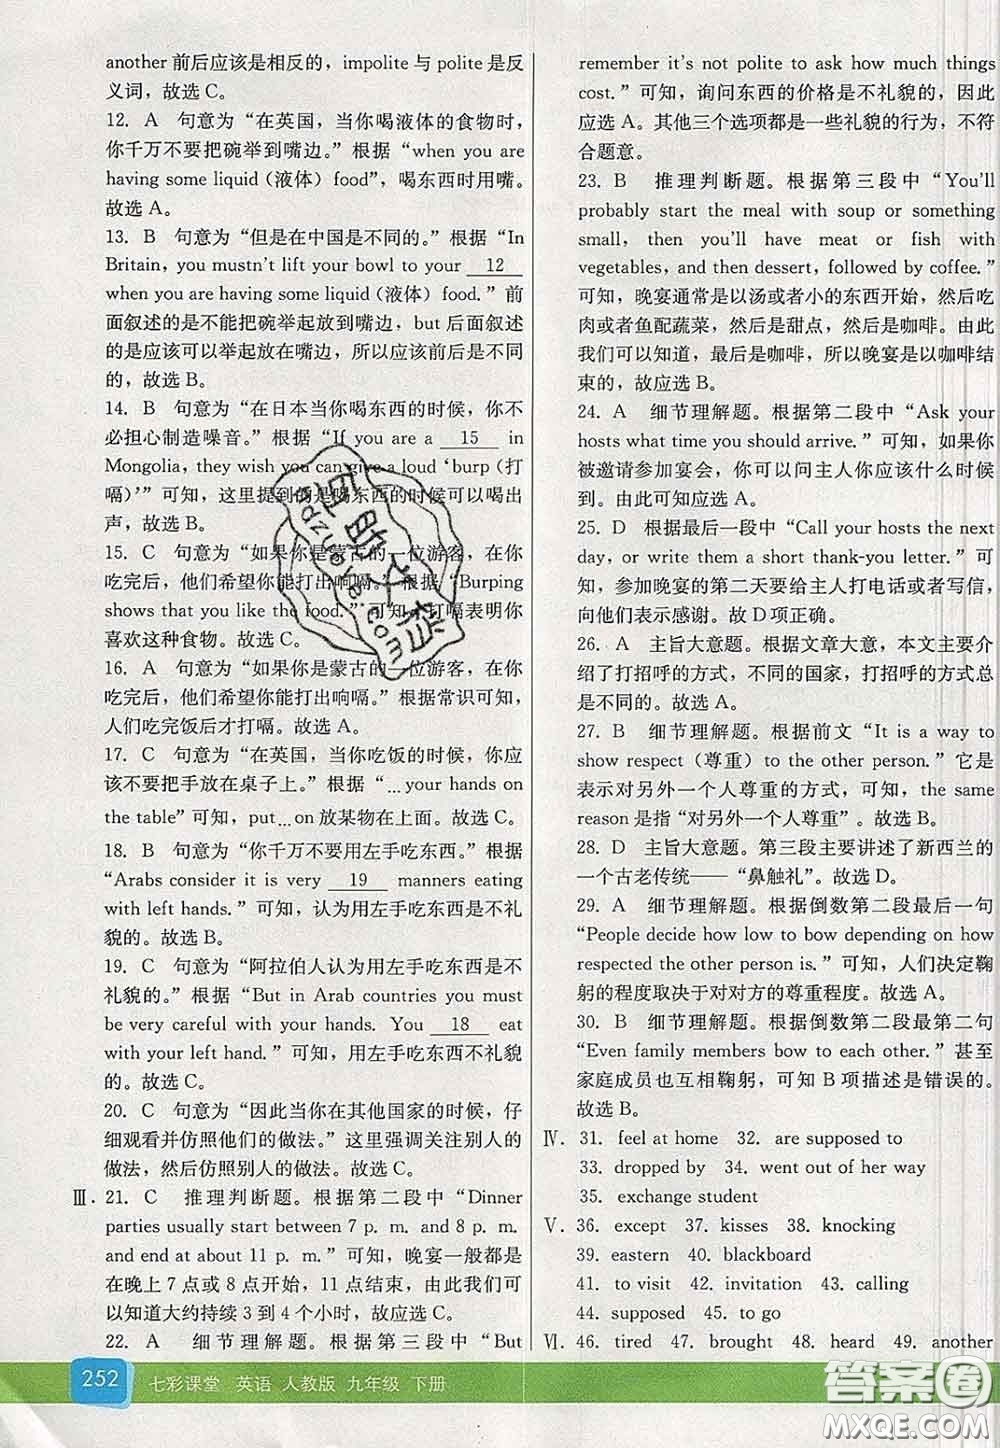 another 前后应该是相反的，impolite 与 polite 是反
义词，故选 C。
12. A 句意为“在英国，当你喝液体的食物时，
你千万不要把碗举到嘴边。”根据“when you are
having some liquid（液体）food”，喝东西时用嘴。
故选 A。
13. B 句意为“但是在中国是不同的。”根据“In
Britain, you mustn't lift your bowl to your 12
when you are having some liquid（液体）food.”前
面叙述的是不能把碗举起放到嘴边，but 后面叙述
的是应该可以举起放在嘴边，所以应该前后是不同
的，故选 B。
14. B 句意为“在日本当你喝东西的时候，你不
必担心制造噪音。”根据“If you are a 15 in
Mongolia, they wish you can give a loud ‘burp（打
嗝）’”可知，这里提到的是喝东西的时候可以喝出
声，故选 B。
15. C 句意为“如果你是蒙古的一位游客，在你
吃完后，他们希望你能打出响嗝。”根据“Burping
shows that you like the food.”可知，打嗝表明你
喜欢这种食物。故选 C。
16. A 句意为“如果你是蒙古的一位游客，在你
吃完后，他们希望你能打出响嗝。”根据常识可知，
人们吃完饭后才打嗝。故选 A。
17. C 句意为“在英国，当你吃饭的时候，你应
该不要把手放在桌子上。”根据“…your hands on
the table”可知，put…on 放某物在上面。故选 C。
18. B 句意为“你千万不要用左手吃东西。”根据
“Arabs consider it is very 19 manners eating
with left hands.”可知，认为用左手吃东西是不礼
貌的。故选 B。
19. C 句意为“阿拉伯人认为用左手吃东西是不
礼貌的。”根据“But in Arab countries you must
be very careful with your hands. You 18 eat
with your left hand.”可知，用左手吃东西不礼貌
的。故选 C。
20. C 句意为“因此当你在其他国家的时候，仔
细观看并仿照他们的做法。”这里强调关注别人的
做法，然后仿照别人的做法。故选 C。
Ⅲ. 21. C 推理判断题。根据第二段中“Dinner
parties usually start between 7 p. m. and 8 p. m.
and end at about 11 p. m.”可知，晚宴一般都是
在晚上 7 点或 8 点开始，11 点结束，由此，我们可
以知道大约持续 3 到 4 个小时，故应选 C。
22. A 细节理解题。根据第三段中“But
remember it's not polite to ask how much things
cost.”可知，询问东西的价格是不礼貌的，因此
应选 A。其他三个选项都是一些礼貌的行为，不符
合题意。
23. B 推理判断题。根据第三段中“You'll
probably start the meal with soup or something
small, then you'll have meat or fish with
vegetables, and then dessert, followed by coffee.”
可知，晚宴通常是以汤或者小的东西开始，然后吃
肉或者鱼配蔬菜，然后是甜点，然后是咖啡。由此
我们可以知道，最后是咖啡，所以晚宴是以咖啡结
束的，故应选 B。
24. A 细节理解题。根据第二段中“Ask your
hosts what time you should arrive.”可知，如果你
被邀请参加宴会，你可以问主人你应该什么时候
到。由此可知应选 A。
25. D 根据最后一段中“Call your hosts the next
day, or write them a short thank-you letter.”可
知，参加晚宴的第二天要给主人打电话或者写信，
向他们表示感谢。故 D 项正确。
26. A 主旨大意题。根据文章大意，本文主要介
绍了打招呼的方式，不同的国家，打招呼的方式总
是不同的。故选 A。
27. B 细节理解题。根据前文“It is a way to
show respect（尊重）to the other person.”它是
表示对另外一个人尊重的方式，可知，the same
reason 是指“对另外一个人尊重”。故选 B。
28. D 主旨大意题。第三段主要讲述了新西兰的
一个古老传统——“鼻触礼”。故选 D。
29. A 细节理解题。根据倒数第二段最后一句
“People decide how low to bow depending on how
respected the other person is.”可知，人们决定鞠
躬的程度取决于对对方的尊重程度。故选 A。
30. B 细节理解题。根据倒数第二段最第二句
“Even family members bow to each other.”甚至
家庭成员也互相鞠躬，可知 B 项描述是错误的。
故选 B。
Ⅳ. 31. feel at home 32. are supposed to
33. dropped by 34. went out of her way
35. exchange student
Ⅴ. 36. except 37. kisses 38. knocking
39. eastern 40. blackboard
41. to visit 42. invitation 43. calling
44. supposed 45. to go
Ⅵ. 46. tired 47. brought 48. heard 49. another
252 七彩课堂 英语 人教版 九年级 下册
答案圈
MXQE.COM